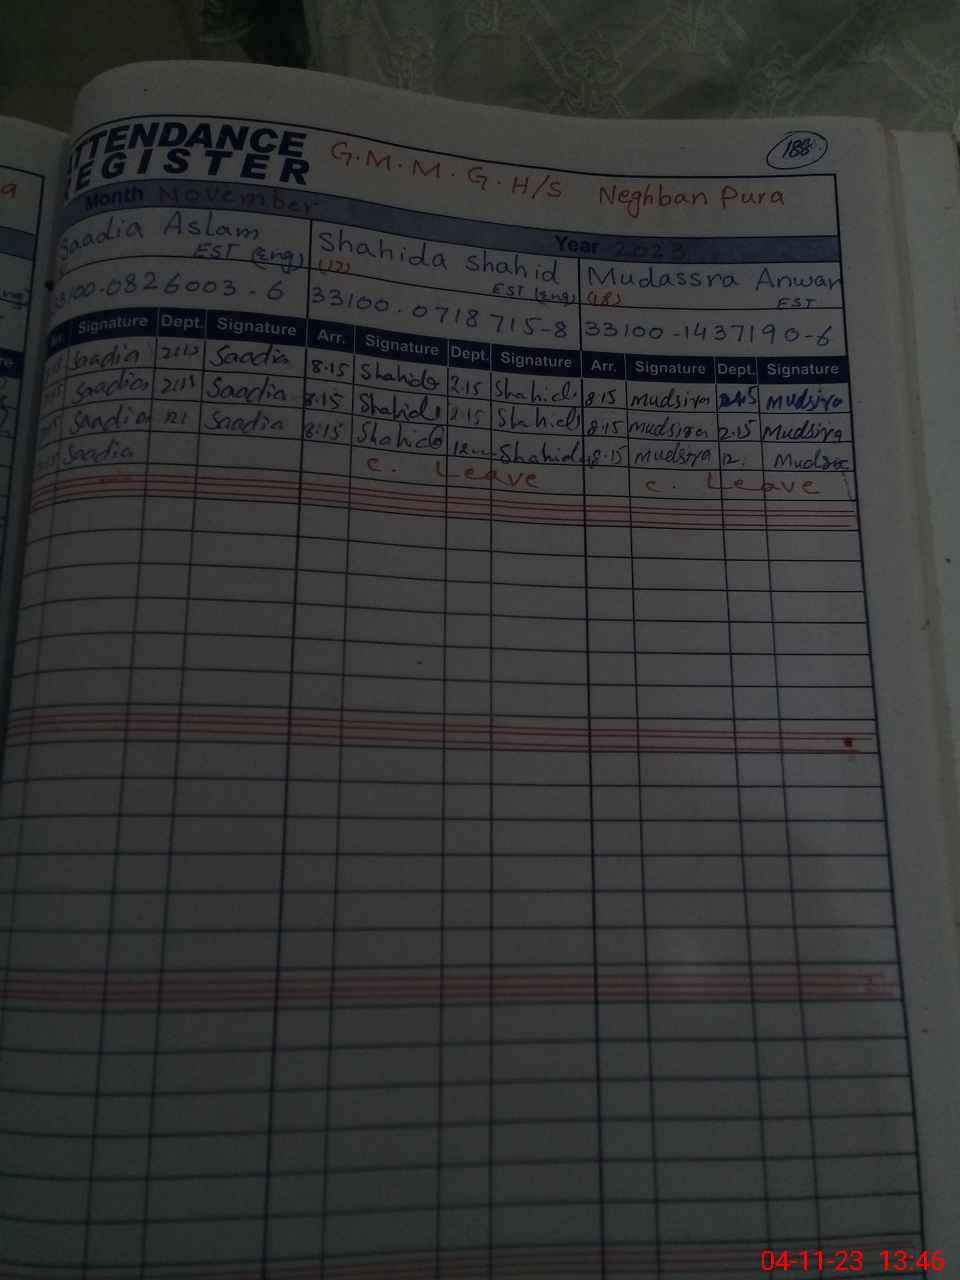 ATTENDANCE
REGISTER
G.M.M.G.H/S Neghban Pura
188
Month November
Year 2023
Saadia Aslam
EST (Eng)
Shahida Shahid
(17)
EST (Eng)
Mudassra Anwar
(18)
EST
33100-0826003-6
33100-0718715-8
33100-1437190-6
Signature Dept. Signature Arr. Signature Dept. Signature Arr. Signature Dept. Signature
Saadia 2:15 Saadia 8.15 Shahida 2.15 Shahida 8.15 Mudsira 2.15 Mudsira
Saadia 2:15 Saadia 8.15 Shahida 2.15 Shahida 8.15 Mudsira 2.15 Mudsira
Saadia 12: Saadia 8:15 Shahida 12 Shahida 8.15 Mudsira 12: Mudsira
Saadia C. Leave C. Leave
04-11-23 13:46